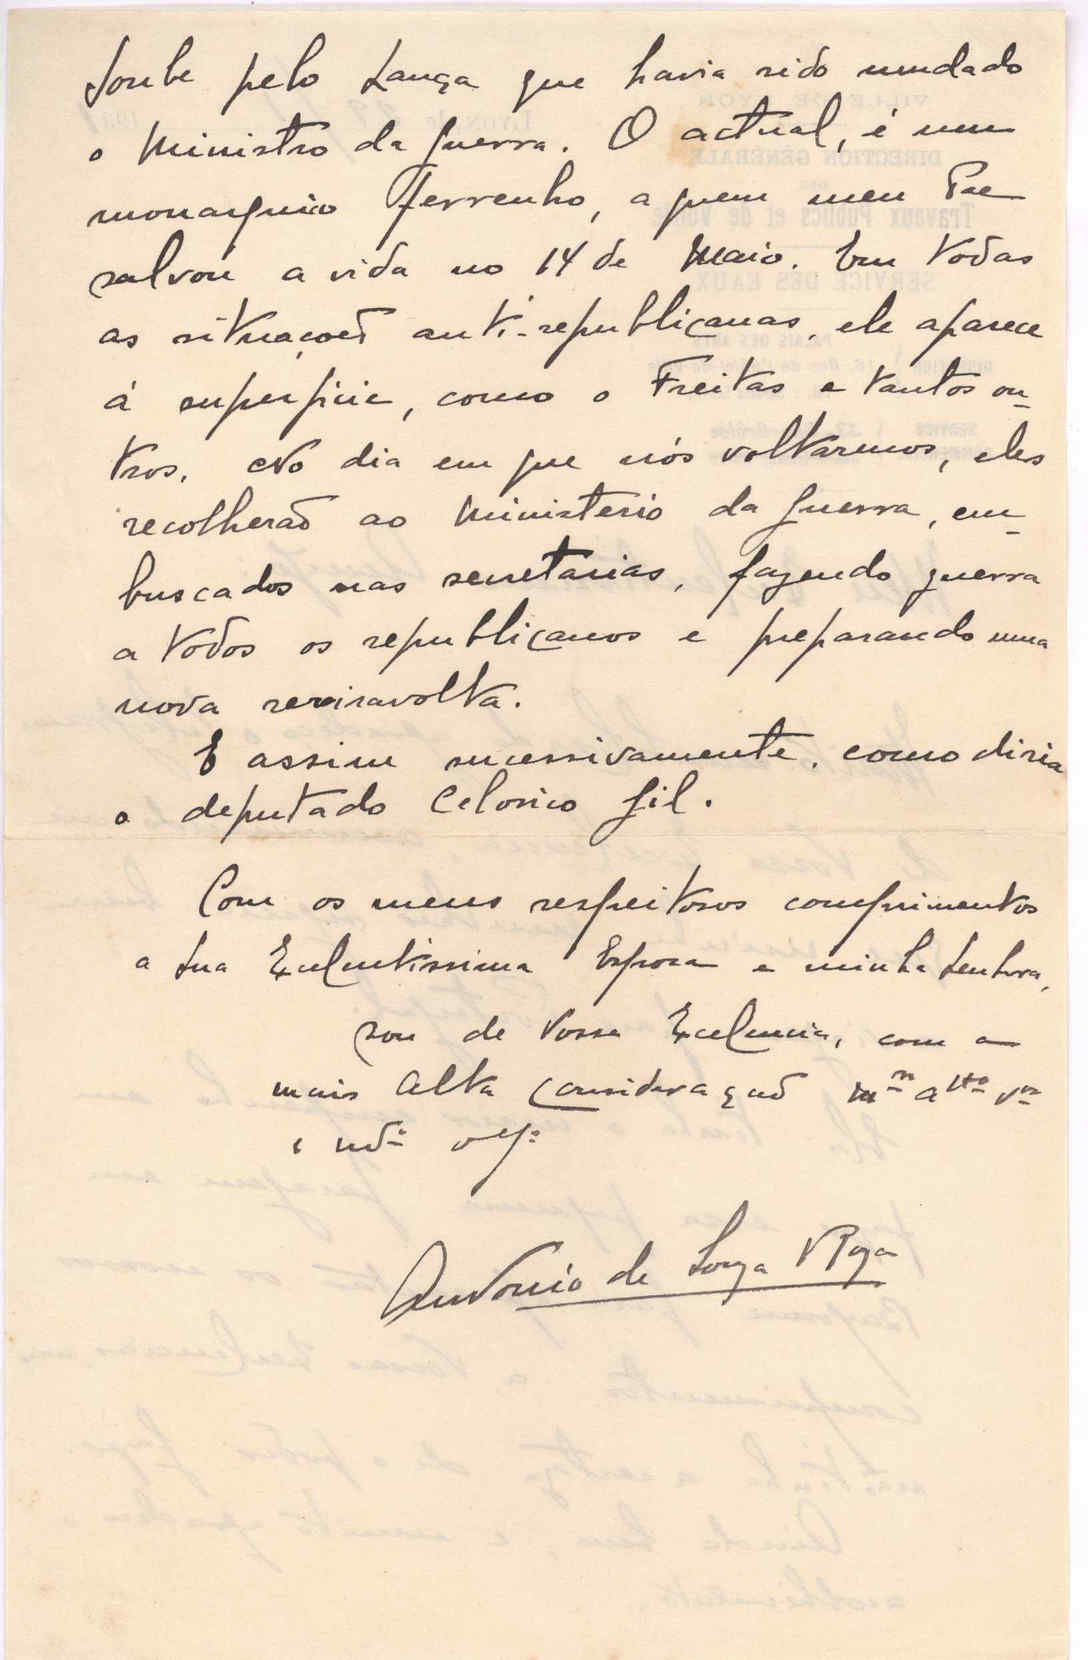 Soube pelo Lança que havia sido mudado
o Ministro da Guerra. O actual, é um
monarquico ferrenho, a quem meu Pae
salvou a vida no 14 de Maio. Em todas
as situações anti-republicanas, ele aparece
á superficie, como o Freitas e tantos ou-
tros. No dia em que nós voltarmos, eles
recolherão ao Ministerio da Guerra, em-
buscados nas secretarias, fazendo guerra
a todos os republicanos e preparando uma
nova reviravolta.
E assim sucessivamente, como diria
o deputado Celorico Gil.
Com os meus respeitosos comprimentos
a sua Excelentissima Esposa e minha Senhora,
sou de Vossa Excelencia, com a
mais alta consideração m.to a.to v.or
e
Antonio de Souza
VILLE DE LYON
LYON, le 193
DIRECTION GÉNÉRALE
Travaux Publics et de Voirie
SERVICE DES EAUX
PALAIS DES ARTS